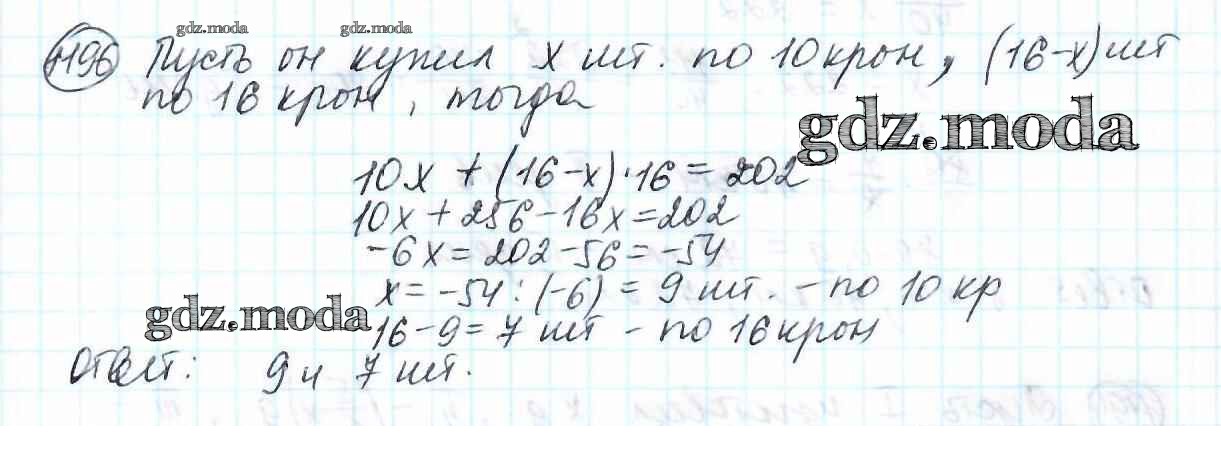 gdz.moda gdz.moda
1196 Пусть он купил x шт. по 10 крон, (16-x) шт
по 16 крон, тогда
gdz.moda
10x + (16-x)·16 = 202
10x + 256 - 16x = 202
-6x = 202 - 56 = -54
x = -54 : (-6) = 9 шт. - по 10 кр
gdz.moda
16 - 9 = 7 шт - по 16 крон
Ответ: 9 и 7 шт.